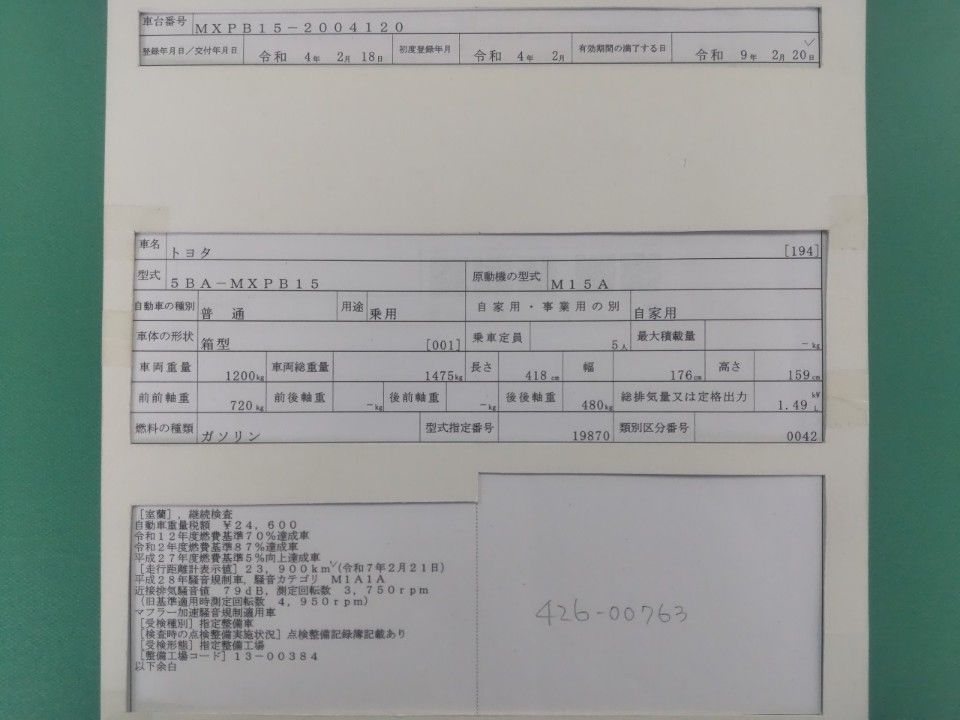 車台番号 MXPB15-2004120
登録年月日/交付年月日 令和 4年 2月 18日 初度登録年月 令和 4年 2月 有効期間の満了する日 令和 9年 2月 20日
車名 トヨタ [194]
型式 5BA-MXPB15 原動機の型式 M15A
自動車の種別 普通 用途 乗用 自家用・事業用の別 自家用
車体の形状 箱型 [001] 乗車定員 5人 最大積載量 -kg
車両重量 1200kg 車両総重量 1475kg 長さ 418cm 幅 176cm 高さ 159cm
前前軸重 720kg 前後軸重 -kg 後前軸重 -kg 後後軸重 480kg 総排気量又は定格出力 1.49 kW L
燃料の種類 ガソリン 型式指定番号 19870 類別区分番号 0042
[室蘭],継続検査
自動車重量税額 ¥24,600
令和12年度燃費基準70%達成車
令和2年度燃費基準87%達成車
平成27年度燃費基準5%向上達成車
[走行距離計表示値]23,900km(令和7年2月21日)
平成28年騒音規制車,騒音カテゴリ M1A1A
近接排気騒音値 79dB,測定回転数 3,750rpm
(旧基準適用時測定回転数 4,950rpm)
マフラー加速騒音規制適用車
[受検種別]指定整備車
[検査時の点検整備実施状況]点検整備記録簿記載あり
[受検形態]指定整備工場
[整備工場コード]13-00384
以下余白
426-00763